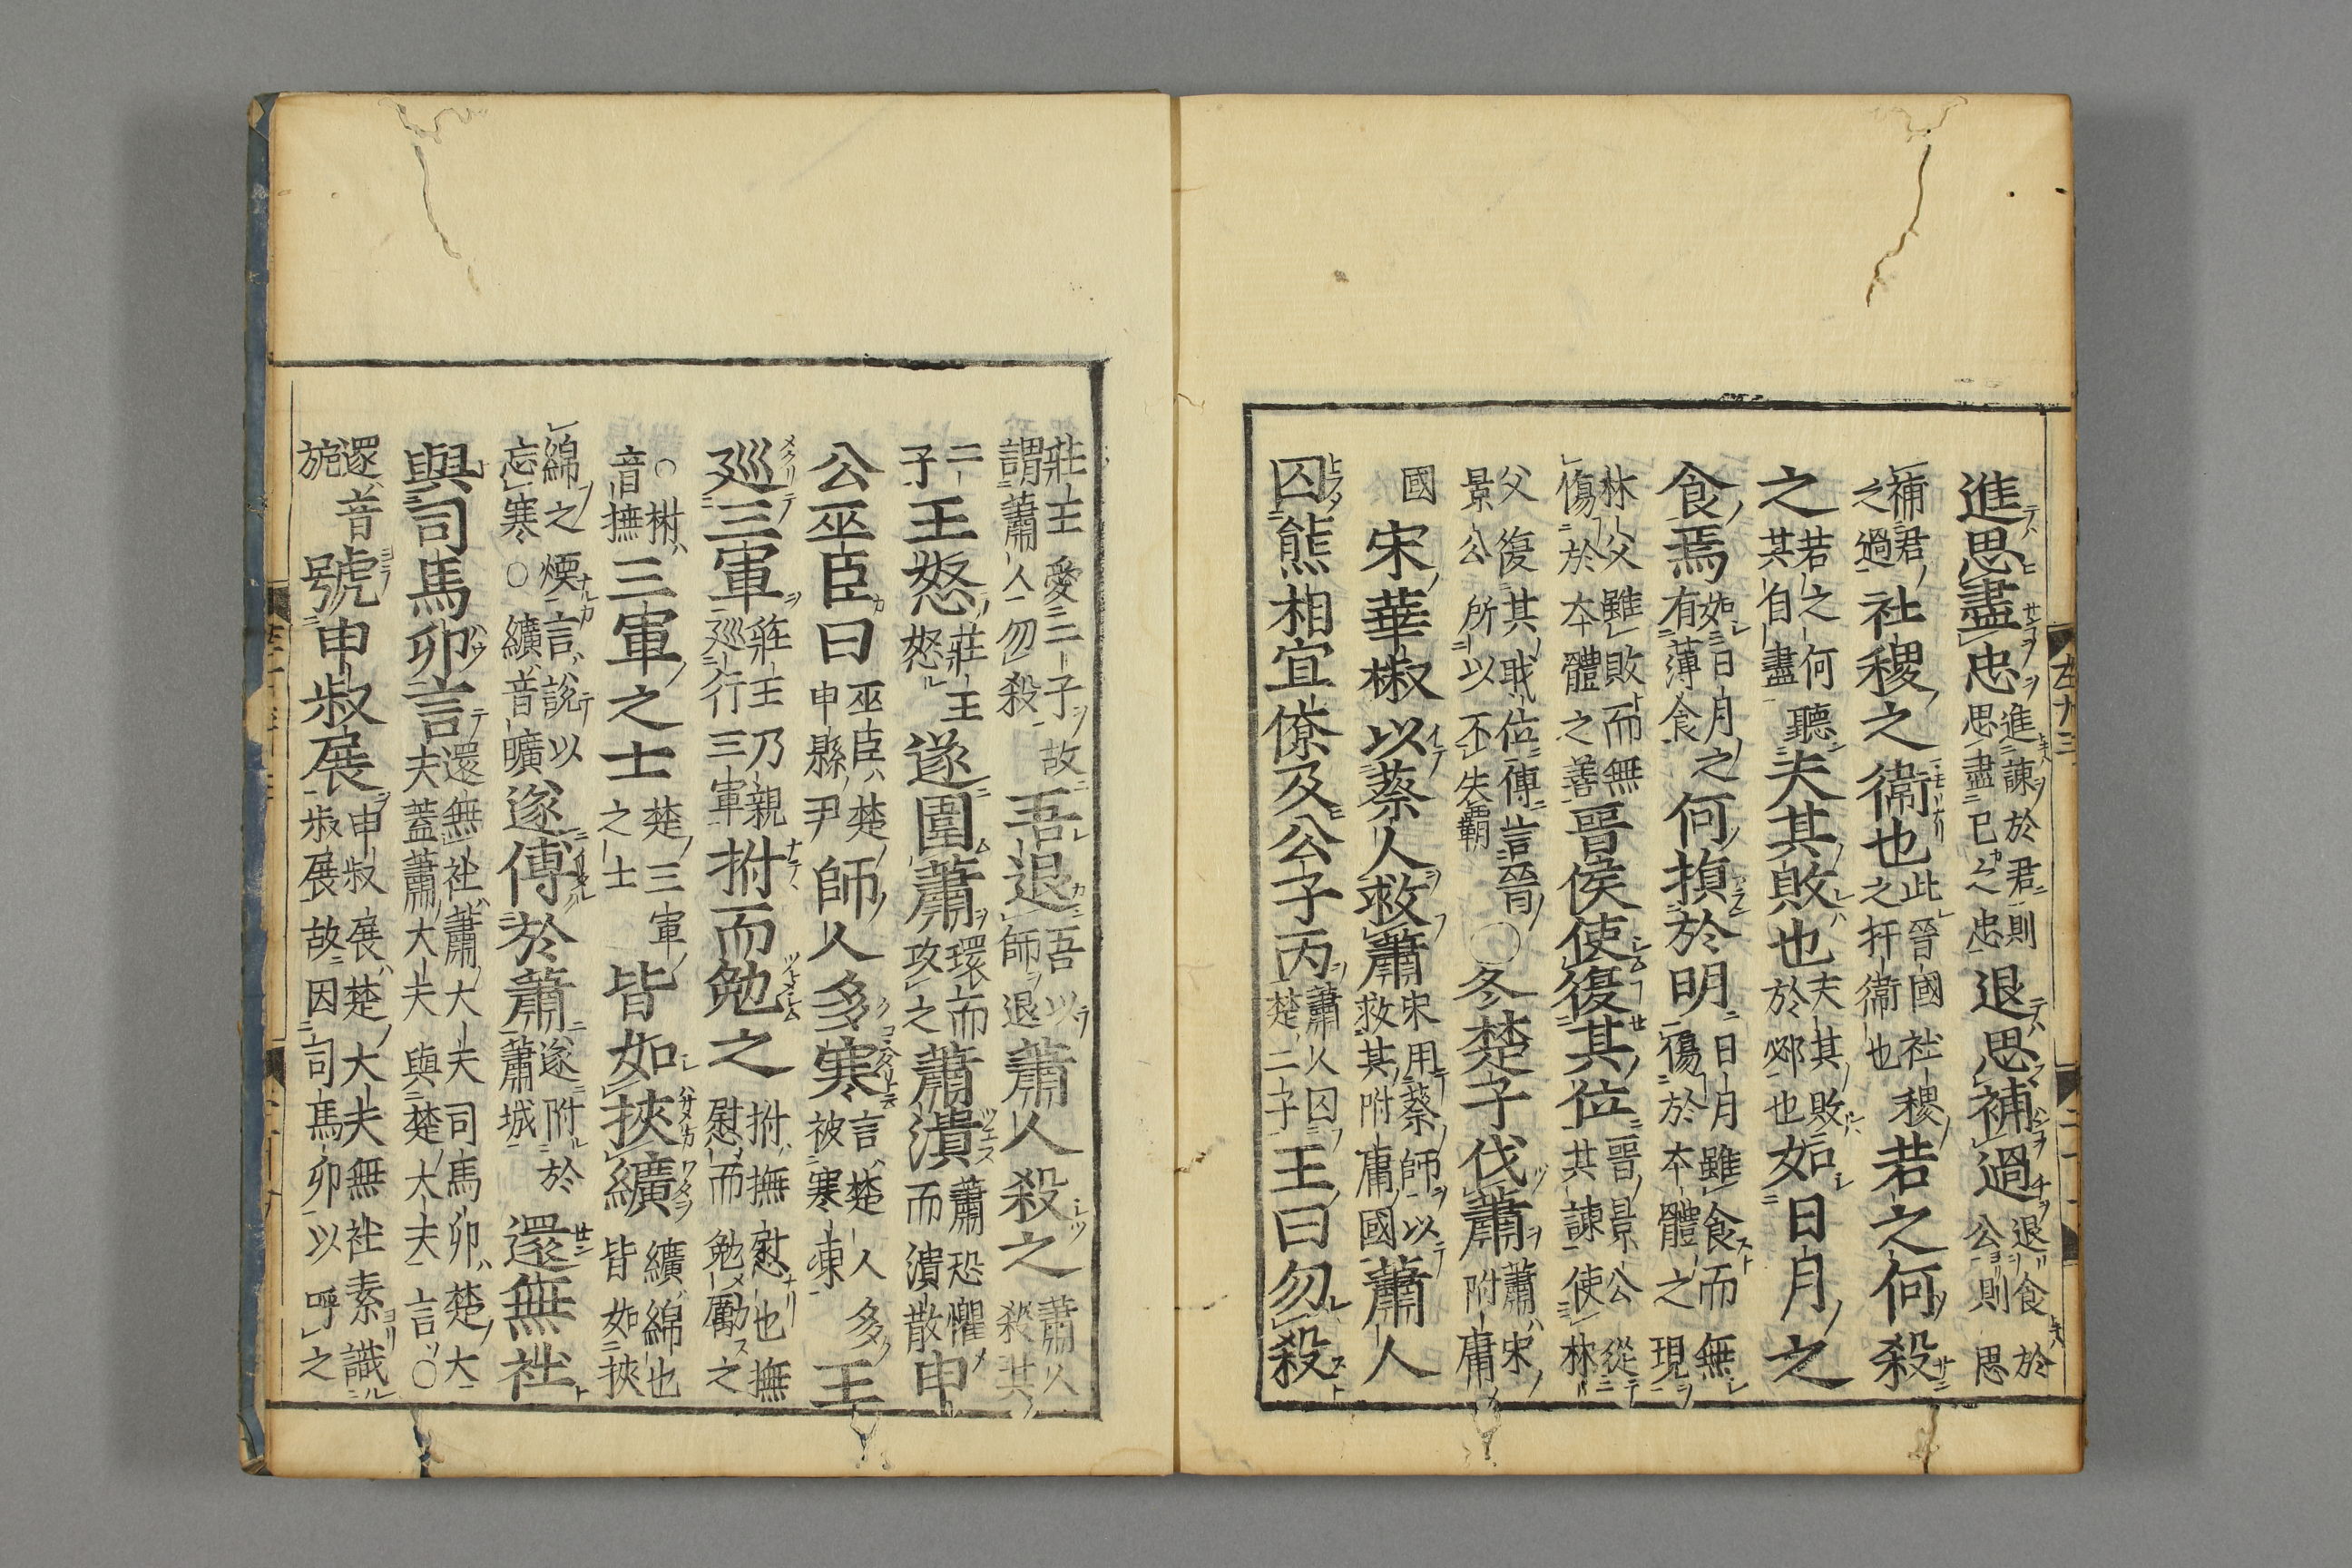 左十三
二十一
進思盡忠進諫於君則思盡己之忠退思補過退食於公則思
補君之過社稷之衛也此晉國社稷之扞衛也若之何殺
之若之何聽其自盡夫其敗也夫其敗於邲也如日月之
食焉如日月之有薄食何損於明日月雖食而無傷於本體之現
林父雖敗而無傷於本體之善晉侯使復其位晉景公從其諫使林
父復其職位傳言晉景公所以不失霸○冬楚子伐蕭蕭宋附庸
國宋華椒以蔡人救蕭宋用蔡師以救其附庸國蕭人
囚熊相宜僚及公子丙蕭人囚楚二子王曰勿殺
莊王愛二子故謂蕭人勿殺吾退吾以師退蕭人殺之蕭人殺其
二子王怒莊王怒遂圍蕭環而攻之蕭潰蕭恐懼而潰散申
公巫臣曰巫臣楚申縣尹師人多寒言楚人多被寒凍王
巡三軍莊王乃親巡行三軍拊而勉之拊撫慰也撫慰而勉勵之
○拊音撫三軍之士楚三軍之士皆如挾纊纊綿也皆如挾
綿之煖言說以忘寒○纊音曠遂傅於蕭遂附於蕭城還無社
與司馬卯言還無社蕭大夫司馬卯楚大夫蓋蕭大夫與楚大夫言○
還音旋號申叔展申叔展楚大夫無社素識叔展故因司馬卯以呼之